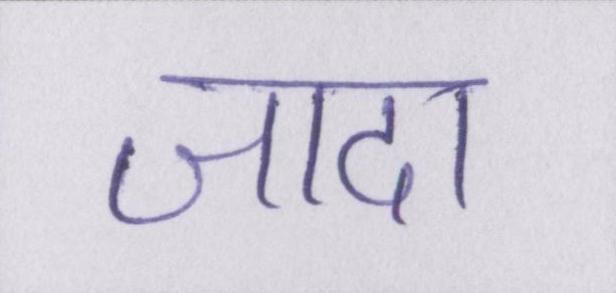 जादा